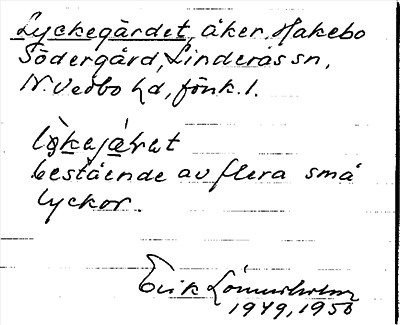 Lyckegärdet, åker. Hakebo
Södergård, Linderås sn,
N. Vedbo hd, Jönk. l.
bestående av flera små
lyckor.
Erik Lönnerholm
1949, 1950